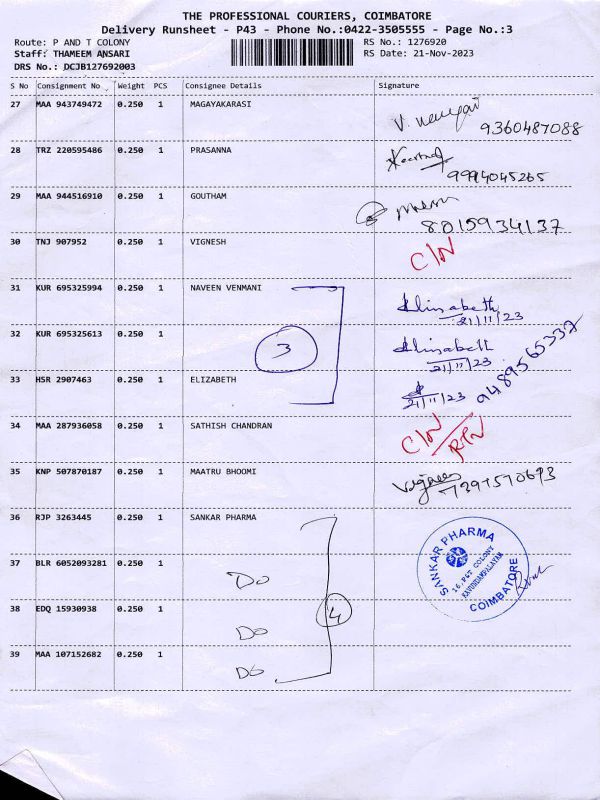 THE PROFESSIONAL COURIERS, COIMBATORE
Delivery Runsheet - P43 - Phone No.:0422-3505555 - Page No.:3
Route: P AND T COLONY RS No.: 1276920
Staff: THAMEEM ANSARI RS Date: 21-Nov-2023
DRS No.: DCJB127692003
S No Consignment No Weight PCS Consignee Details Signature
27 MAA 943749472 0.250 1 MAGAYAKARASI
9360487088
28 TRZ 220595486 0.250 1 PRASANNA
9994045265
29 MAA 944516910 0.250 1 GOUTHAM
8015934137
30 TNJ 907952 0.250 1 VIGNESH C/N
31 KUR 695325994 0.250 1 NAVEEN VENMANI Elizabeth
21/11/23
32 KUR 695325613 0.250 1 3 Elizabeth
21/11/23
33 HSR 2907463 0.250 1 ELIZABETH 21/11/23
34 MAA 287936058 0.250 1 SATHISH CHANDRAN C/N
35 KNP 507870187 0.250 1 MAATRU BHOOMI
36 RJP 3263445 0.250 1 SANKAR PHARMA
SANKAR PHARMA
16, P&T COLONY
KAVUNDAMPALAYAM
COIMBATORE
37 BLR 6052093281 0.250 1
Do
38 EDQ 15930938 0.250 1 4
Do
39 MAA 107152682 0.250 1
Do